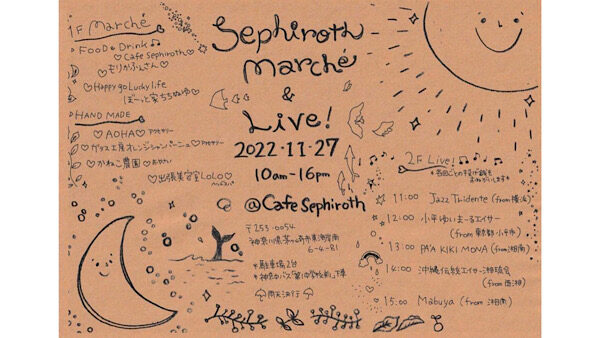 1F Marché
FooD & Drink♫
♡Cafe Sephiroth♡
♡もりかふぇさん♡
♡Happy go Lucky life
ぼーっと家ちちぬゆ♡
HAND MADE
♡AOHA♡アクセサリー
♡ガラス工房オレンジシャンパーニュ♡アクセサリー
♡かねこ農園♡おやさい
♡出張美容室LoLo♡
Sephiroth
Marché
&
Live!
2022・11・27
10am-16pm
@Cafe Sephiroth
〒253-0054
神奈川県茅ヶ崎市東海岸南
6-4-81
*駐車場2台
*神奈中バス「第一中学校前」下車
雨天決行
2F Live!
*各回ごとの投げ銭を
お願いします*
11:00 Jazz Tridente (from 横浜)
12:00 小平ゆいまーるエイサー
(from 東京都・小平市)
13:00 PA'A KIKI MONA (from 湘南)
14:00 沖縄伝統エイサー湘琉会
(from 西湘)
15:00 Mabuya (from 湘南)